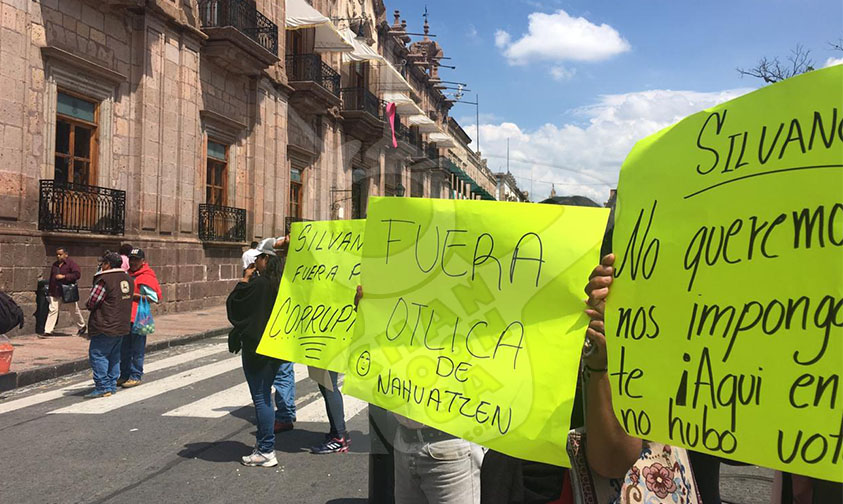 SILVAN
FUERA P
CORRUP
FUERA
OTLICA
DE
NAHUATZEN
SILVANO
No querem
nos impong
te ¡Aqui en
no hubo vot